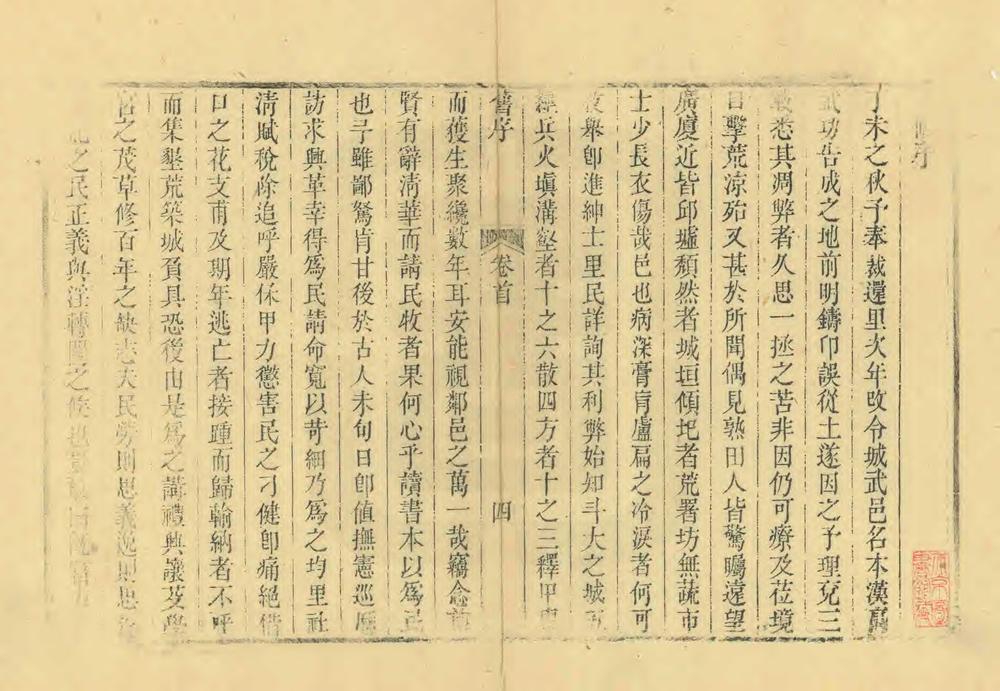 序
丁未之秋予奉裁還里次年改令城武邑名本漢高
武功告成之地前明鑄印誤從土遂因之予理兗三
載悉其凋弊者久思一拯之苦非因仍可療及莅境
目擊荒涼殆又甚於所聞偶見熟田人皆驚矚遠望
廣廈近皆邱墟頹然者城垣傾圮者荒署坊無蔬市
士少長衣傷哉邑也病深膏肓盧扁之冷淚者何可
舉卽進紳士里民詳詢其利弊始知斗大之城五
經兵火塡溝壑者十之六散四方者十之三釋甲
舊序
卷首
四
而獲生聚纔數年耳安能視鄰邑之萬一哉竊念前
賢有辭淸華而請民牧者果何心乎讀書本以爲
也予雖鄙駑肯甘後於古人未旬日卽值撫憲巡歷
訪求興革幸得爲民請命寬以苛細乃爲之均里社
淸賦稅除追呼嚴保甲力懲害民之刁健卽痛絕借
口之花支甫及期年逃亡者接踵而歸輸納者不呼
而集墾荒築城貟具恐後由是爲之講禮興讓芟學
宮之茂草修百年之缺志夫民勞則思義逸則思
之民正義與淫轉關之候